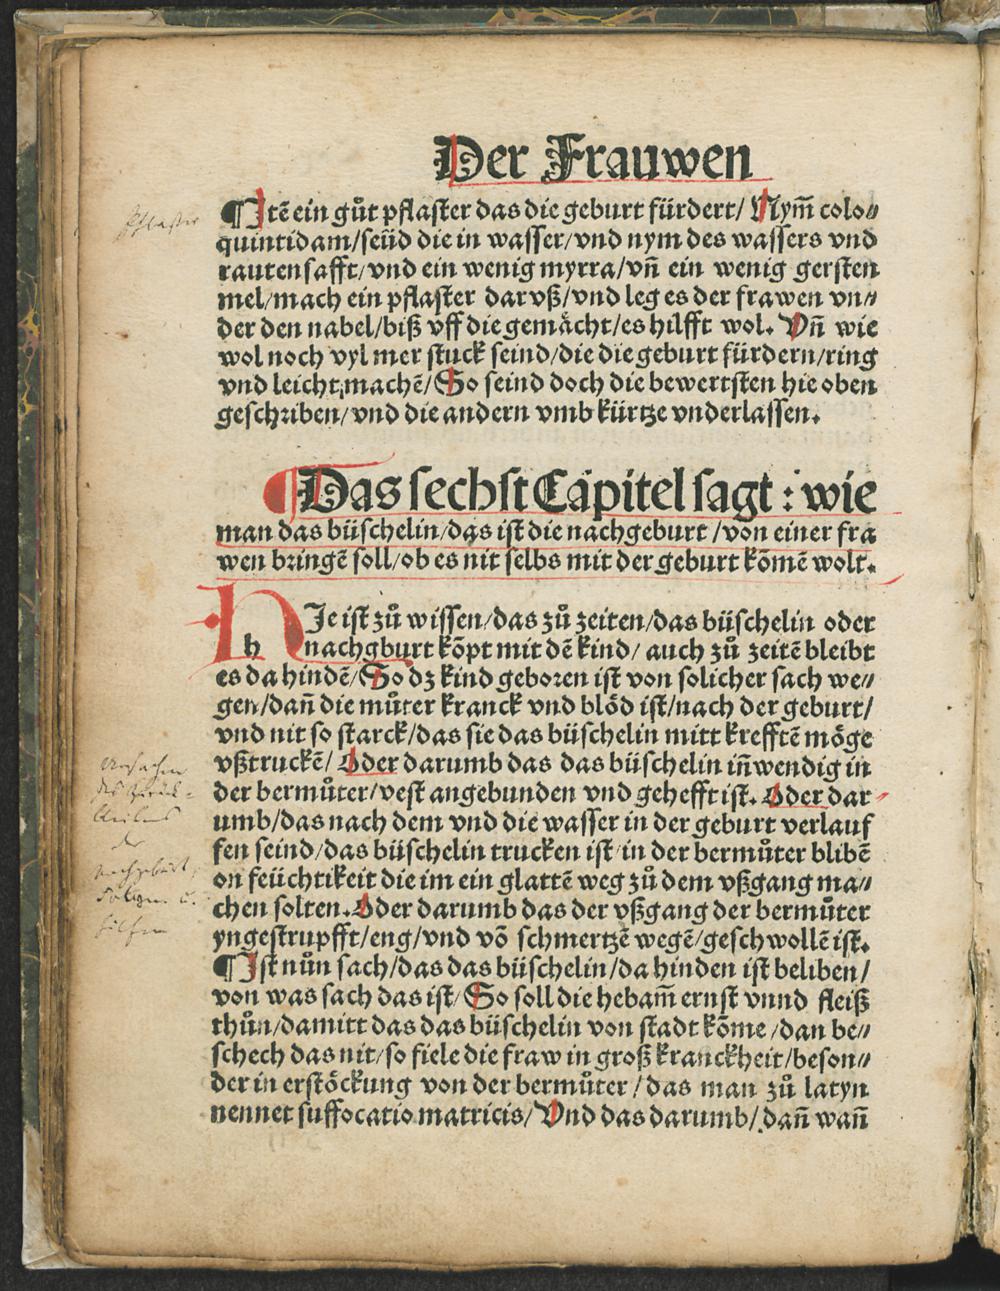 Der Frauwen
Pflaster
¶ Itē ein gůt pflaster das die geburt fürdert/ Nym̄ colo⸗
quintidam/seüd die in wasser/vnd nym des wassers vnd
rautensafft/vnd ein wenig myrra/vn̄ ein wenig gersten
mel/mach ein pflaster darvß/vnd leg es der frawen vn⸗
der den nabel/biß vff die gemächt/es hilfft wol. Vn̄ wie
wol noch vyl mer stuck seind/die die geburt fürdern/ring
vnd leicht machē/ So seind doch die bewertsten hie oben
geschriben/vnd die andern vmb kürtze vnderlassen.
¶ Das sechst Capitel sagt : wie
man das büschelin/das ist die nachgeburt/von einer fra
wen bringē soll/ob es nit selbs mit der geburt kōmē wolt.
H h Je ist zů wissen/das zů zeiten/das büschelin oder
nachgburt kōpt mit dē kind/ auch zů zeitē bleibt
es da hindē/ So dz kind geboren ist von solicher sach we⸗
gen/dan̄ die můter kranck vnd blöd ist/nach der geburt/
vnd nit so starck/das sie das büschelin mitt krefftē möge
vßtruckē/ Oder darumb das das büschelin in̄wendig in
der bermůter/vest angebunden vnd gehefft ist. Oder dar
umb/das nach dem vnd die wasser in der geburt verlauf
fen seind/das büschelin trucken ist/in der bermůter blibē
on feüchtikeit die im ein glattē weg zů dem vßgang ma⸗
chen solten. Oder darumb das der vßgang der bermůter
yngestrupfft/eng/vnd vō schmertzē wegē/geschwollē ist.
Ursachen
des Zurük⸗
bleibens
der
nachgeburt,
Folgen u.
Hilfen
¶ Ist nůn sach/das das büschelin/da hinden ist beliben/
von was sach das ist/ So soll die hebam̄ ernst vnnd fleiß
thůn/damitt das das büschelin von stadt kōme/dan be⸗
schech das nit/so fiele die fraw in groß kranckheit/beson⸗
der in erstöckung von der bermůter/das man zů latyn
nennet suffocatio matricis/ Vnd das darumb/dan̄ wan̄